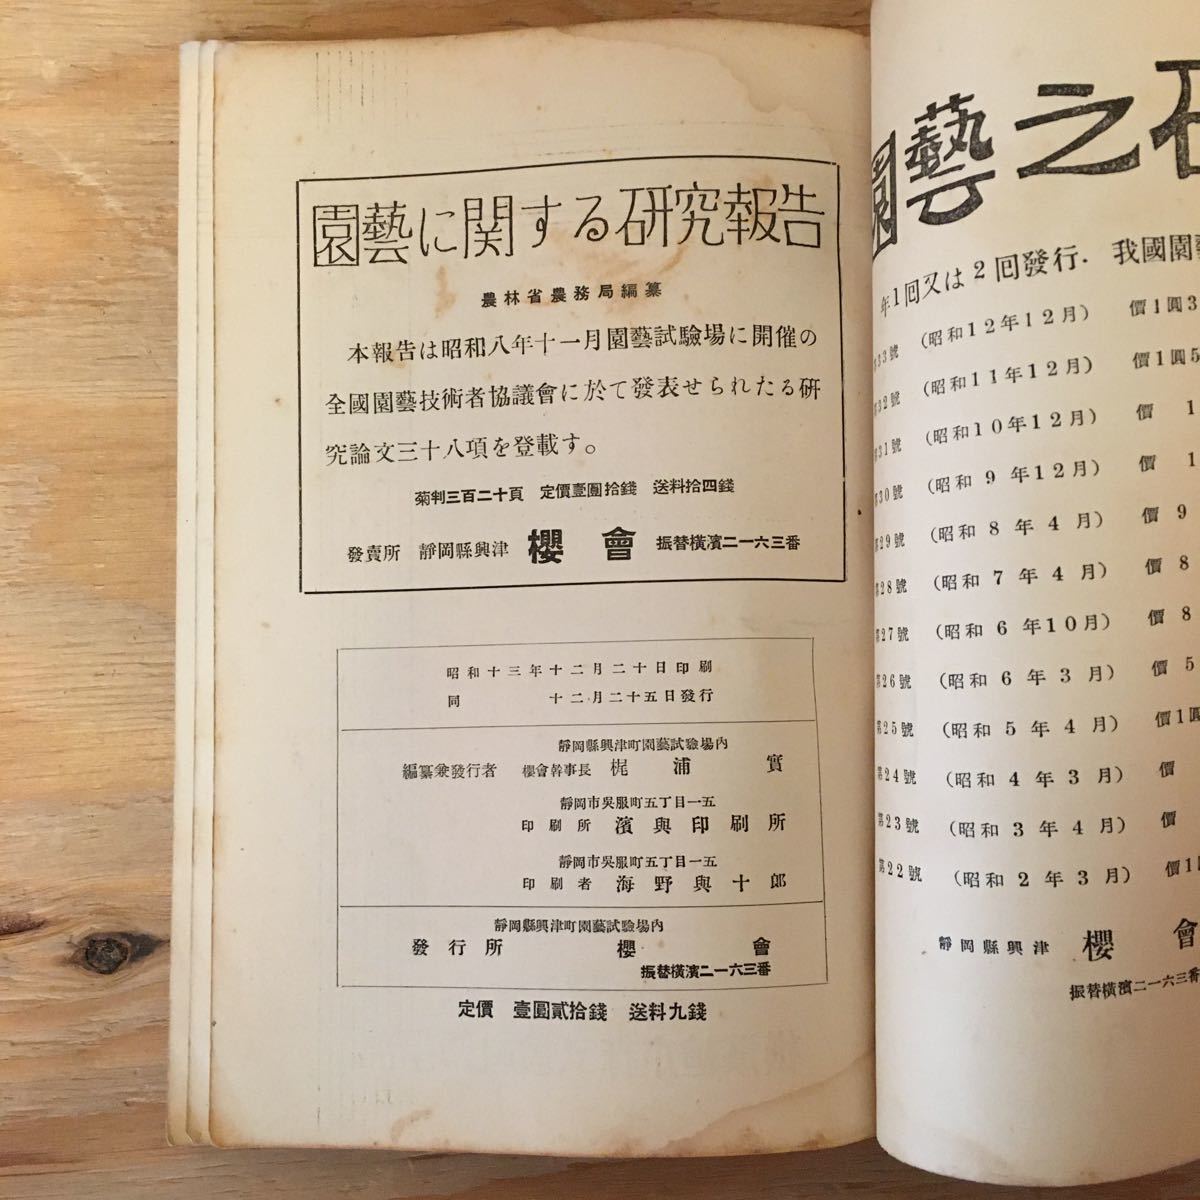 園藝に関する研究報告
農林省農務局編纂
本報告は昭和八年十一月園藝試驗場に開催の
全國園藝技術者協議會に於て發表せられたる研
究論文三十八項を登載す。
菊判三百二十頁 定價壹圓拾錢 送料拾四錢
發賣所 靜岡縣興津 櫻會 振替橫濱二一六三番
昭和十三年十二月二十日印刷
同 十二月二十五日發行
靜岡縣興津町園藝試驗場內
編纂兼發行者 櫻會幹事長 梶浦實
靜岡市吳服町五丁目一五
印刷所 濱與印刷所
靜岡市吳服町五丁目一五
印刷者 海野與十郎
靜岡縣興津町園藝試驗場內
發行所 櫻會
振替橫濱二一六三番
定價 壹圓貳拾錢 送料九錢
園藝之研
年1回又は2回發行. 我國園藝
第33號 (昭和12年12月) 價1圓3
第32號 (昭和11年12月) 價1圓5
第31號 (昭和10年12月) 價 1
第30號 (昭和9年12月) 價 1
第29號 (昭和8年4月) 價 9
第28號 (昭和7年4月) 價 8
第27號 (昭和6年10月) 價 8
第26號 (昭和6年3月) 價 5
第25號 (昭和5年4月) 價1圓
第24號 (昭和4年3月) 價
第23號 (昭和3年4月) 價
第22號 (昭和2年3月) 價1
靜岡縣興津 櫻會
振替橫濱二一六三番